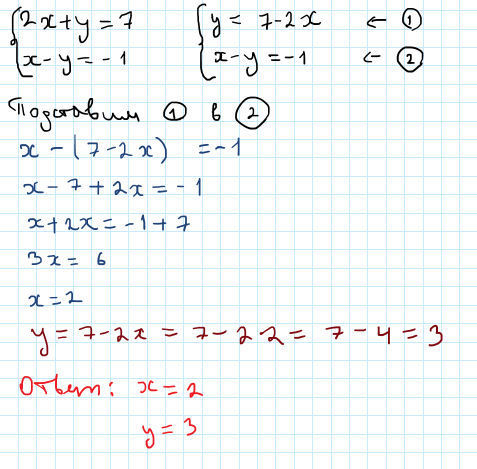 {2x+y=7 {y=7-2x ← ①
{x-y=-1 {x-y=-1 ← ②
Подставим ① в ②
x-(7-2x) =-1
x-7+2x=-1
x+2x=-1+7
3x=6
x=2
y=7-2x=7-2·2=7-4=3
Ответ: x=2
y=3